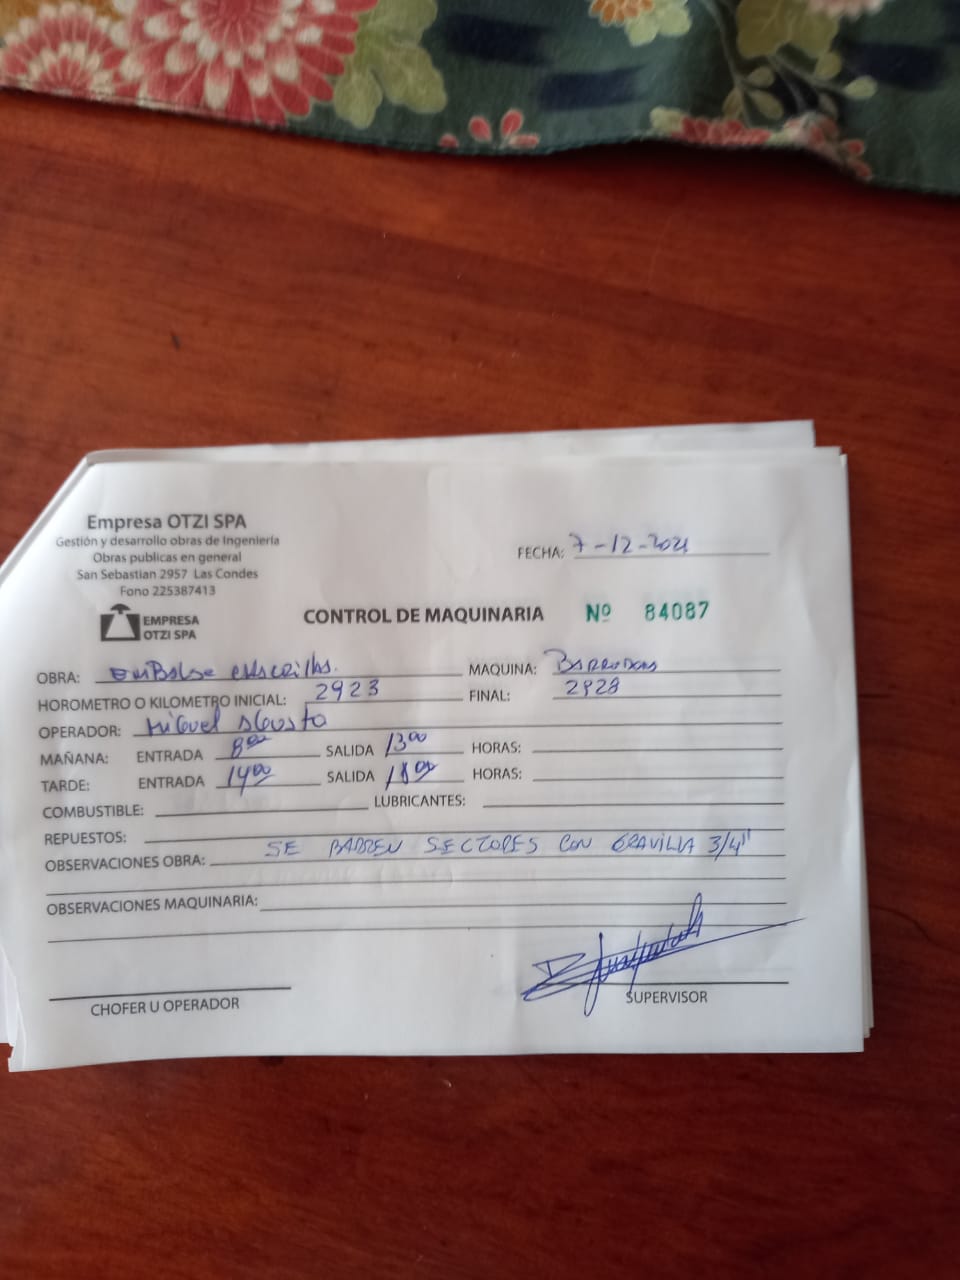 Empresa OTZI SPA
Gestión y desarrollo obras de Ingeniería
Obras publicas en general
San Sebastian 2957 Las Condes
Fono 225387413
EMPRESA
OTZI SPA
FECHA: 7-12-2021
CONTROL DE MAQUINARIA Nº 84087
OBRA: EMBALSE MAQUINA:
HOROMETRO O KILOMETRO INICIAL: 2923 FINAL: 2928
OPERADOR: Miguel
MAÑANA: ENTRADA 8⁰⁰ SALIDA 13⁰⁰ HORAS:
TARDE: ENTRADA 14⁰⁰ SALIDA 18⁰⁰ HORAS:
COMBUSTIBLE: LUBRICANTES:
REPUESTOS:
OBSERVACIONES OBRA: SE BARREN SECTORES CON GRAVILLA 3/4"
OBSERVACIONES MAQUINARIA:
CHOFER U OPERADOR
SUPERVISOR